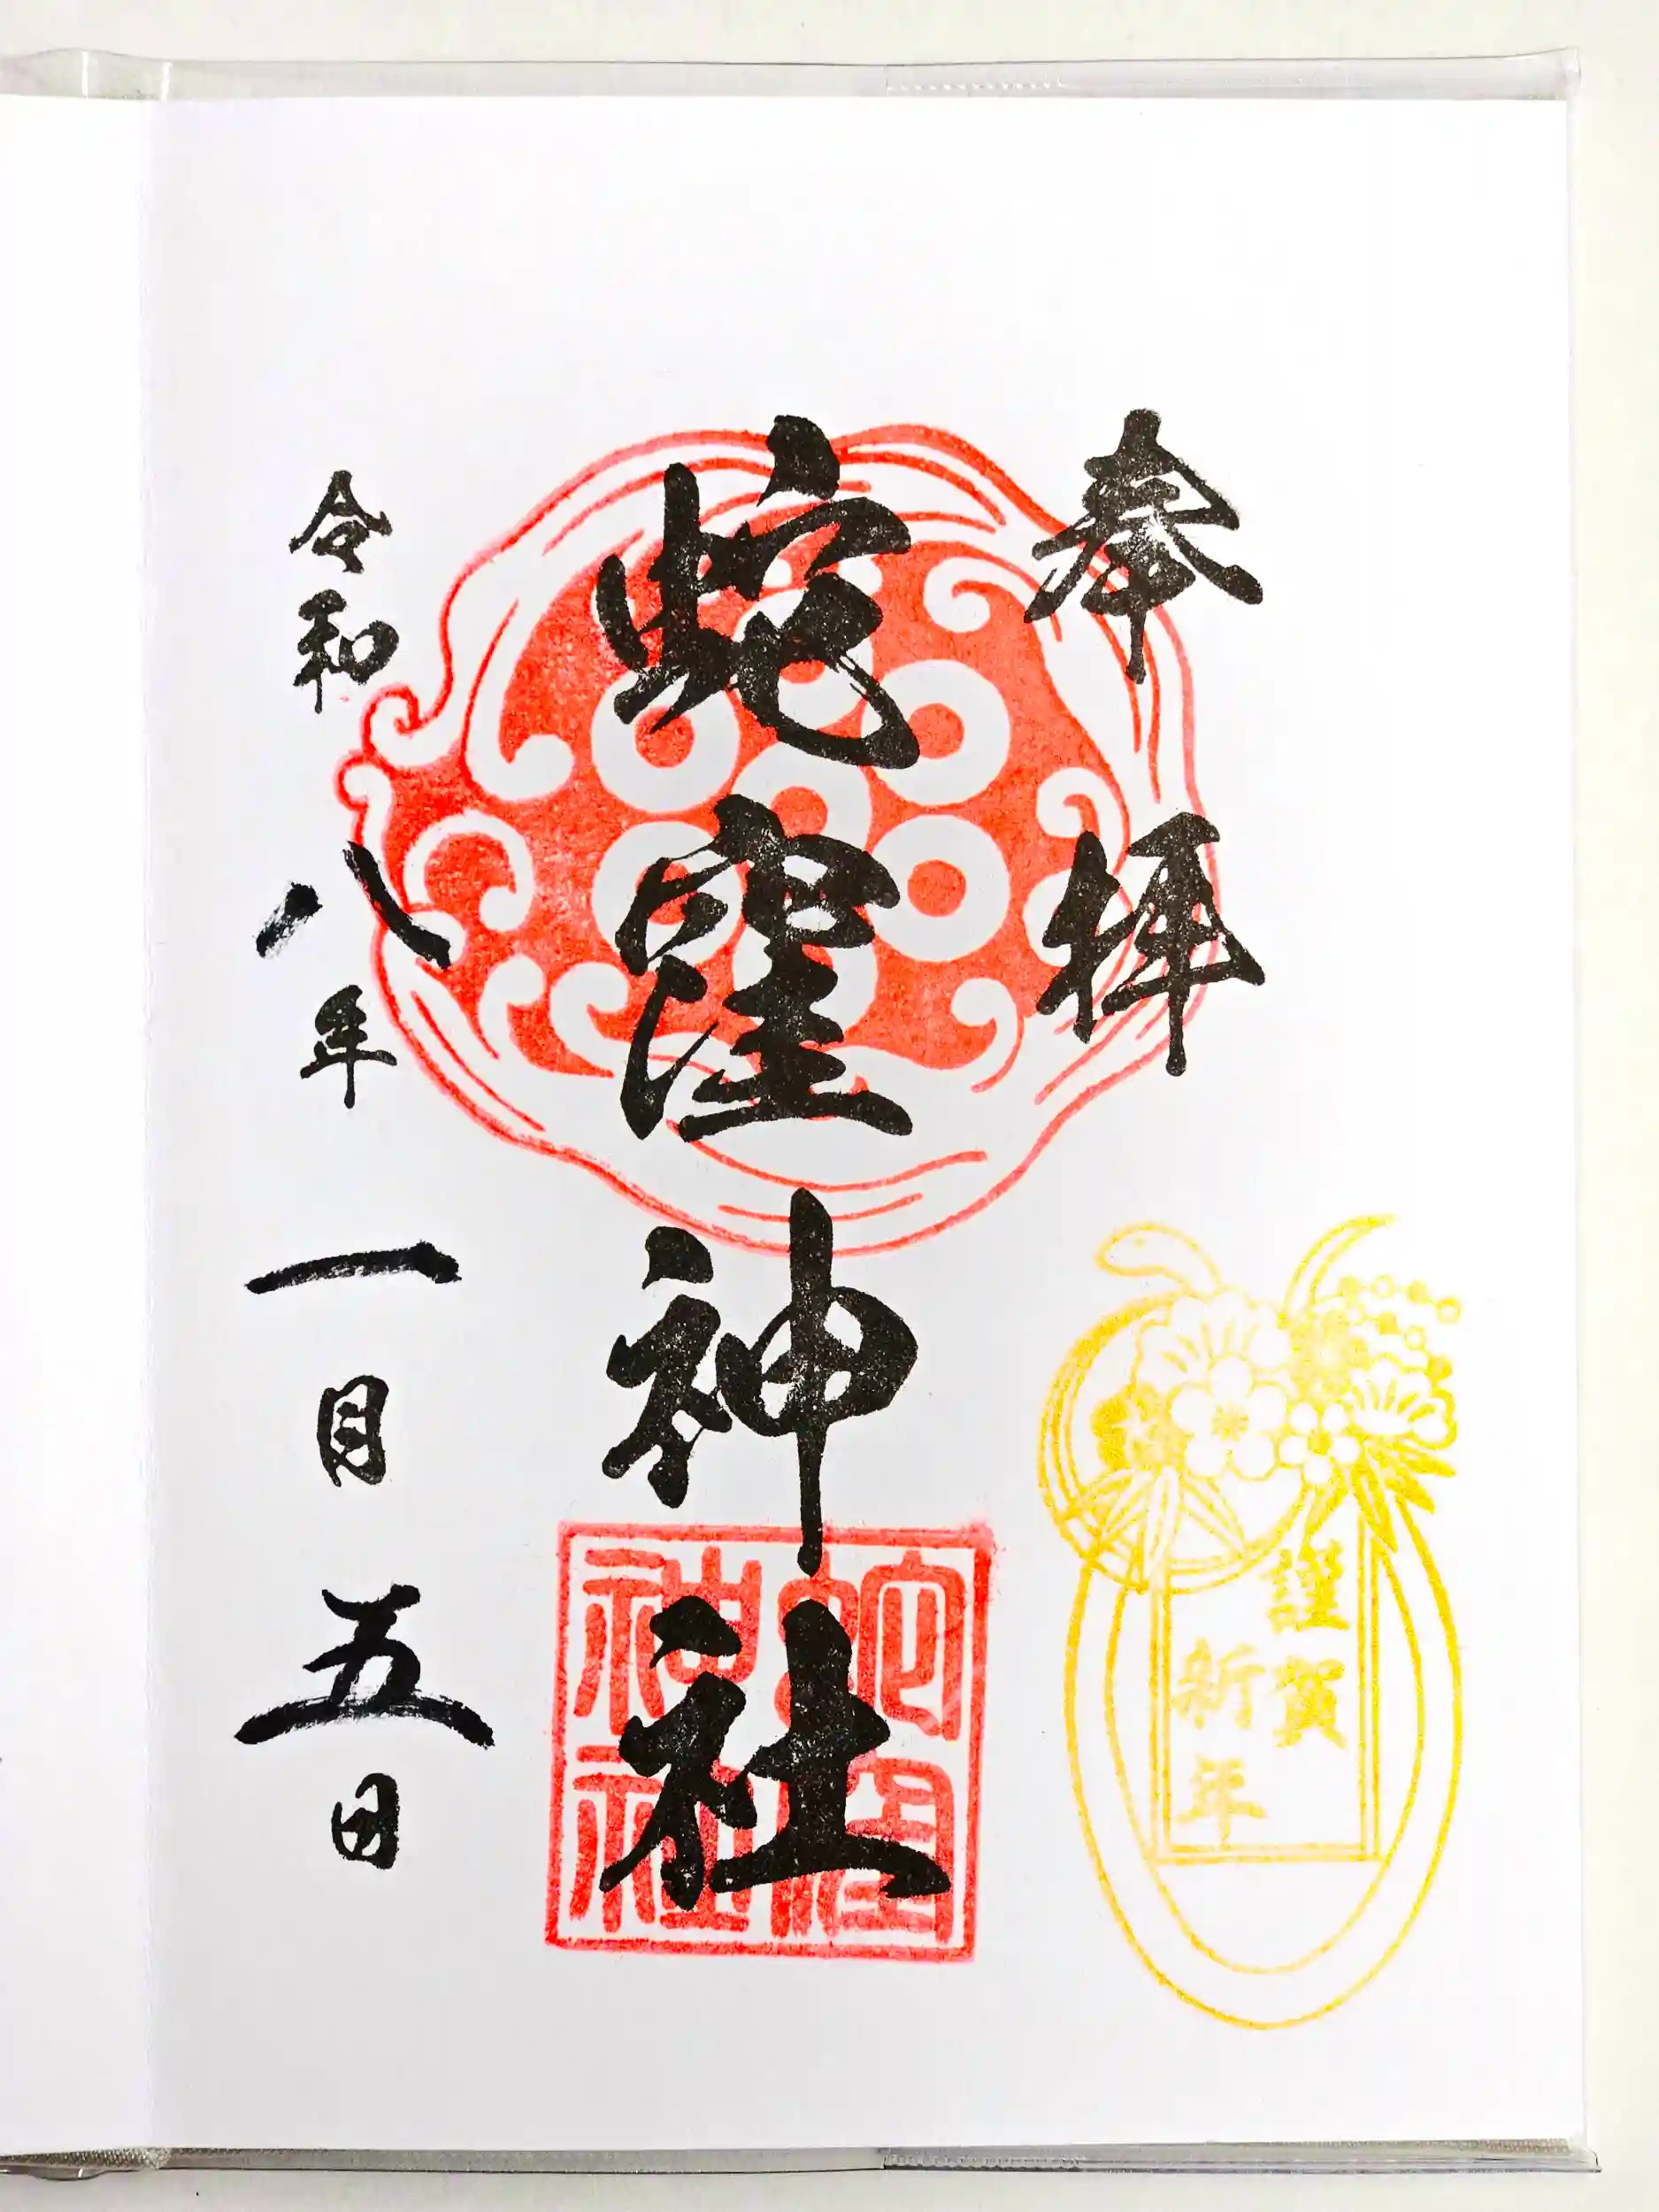 奉拝
蛇窪神社
令和八年一月五日
蛇窪
神社
謹賀
新年